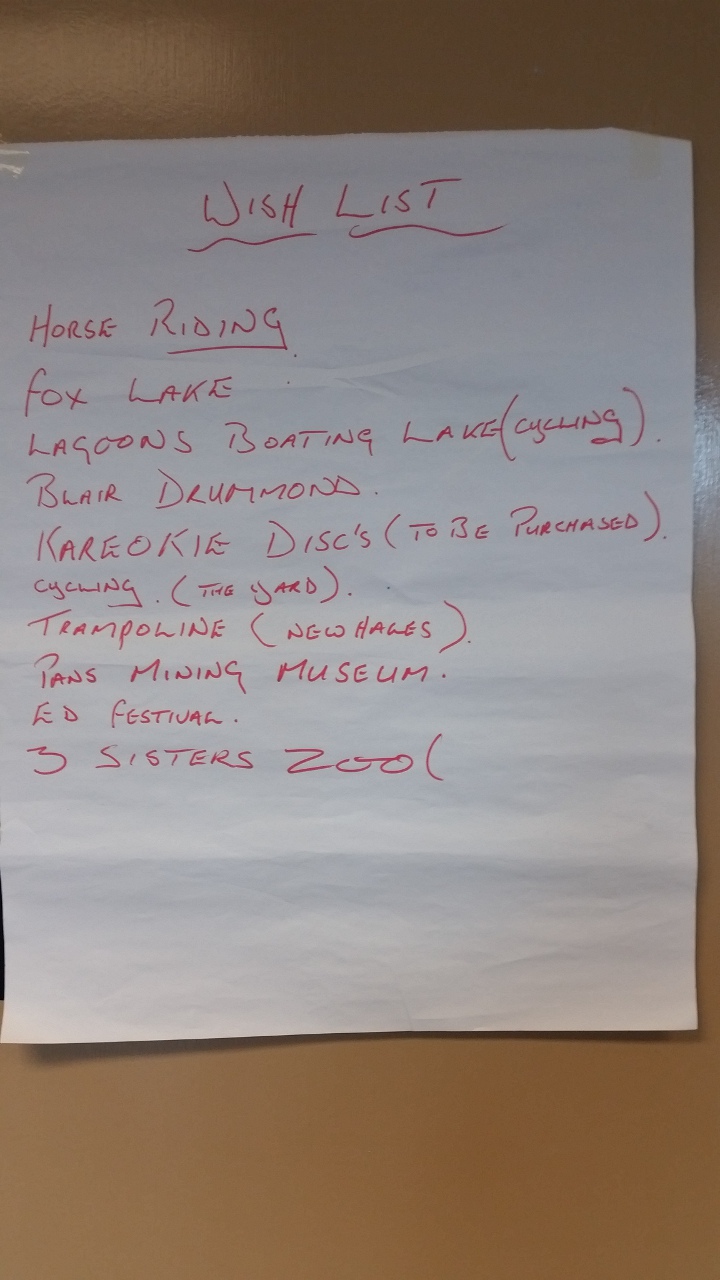 WISH LIST
HORSE RIDING.
FOX LAKE
LAGOONS BOATING LAKE (CYCLING).
BLAIR DRUMMOND.
KAREOKIE DISC'S (TO BE PURCHASED).
CYCLING. (THE YARD).
TRAMPOLINE (NEWHALES).
PANS MINING MUSEUM.
ED FESTIVAL.
3 SISTERS ZOO (